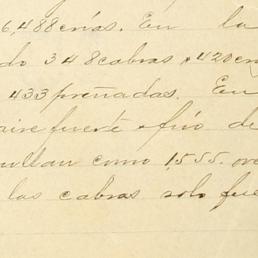 6,488 crías. En la
do 348 cabras y 420 cr
433 preñadas. En
aire fuerte y frío de
sultan como 1,555. ove
las cabras solo fue